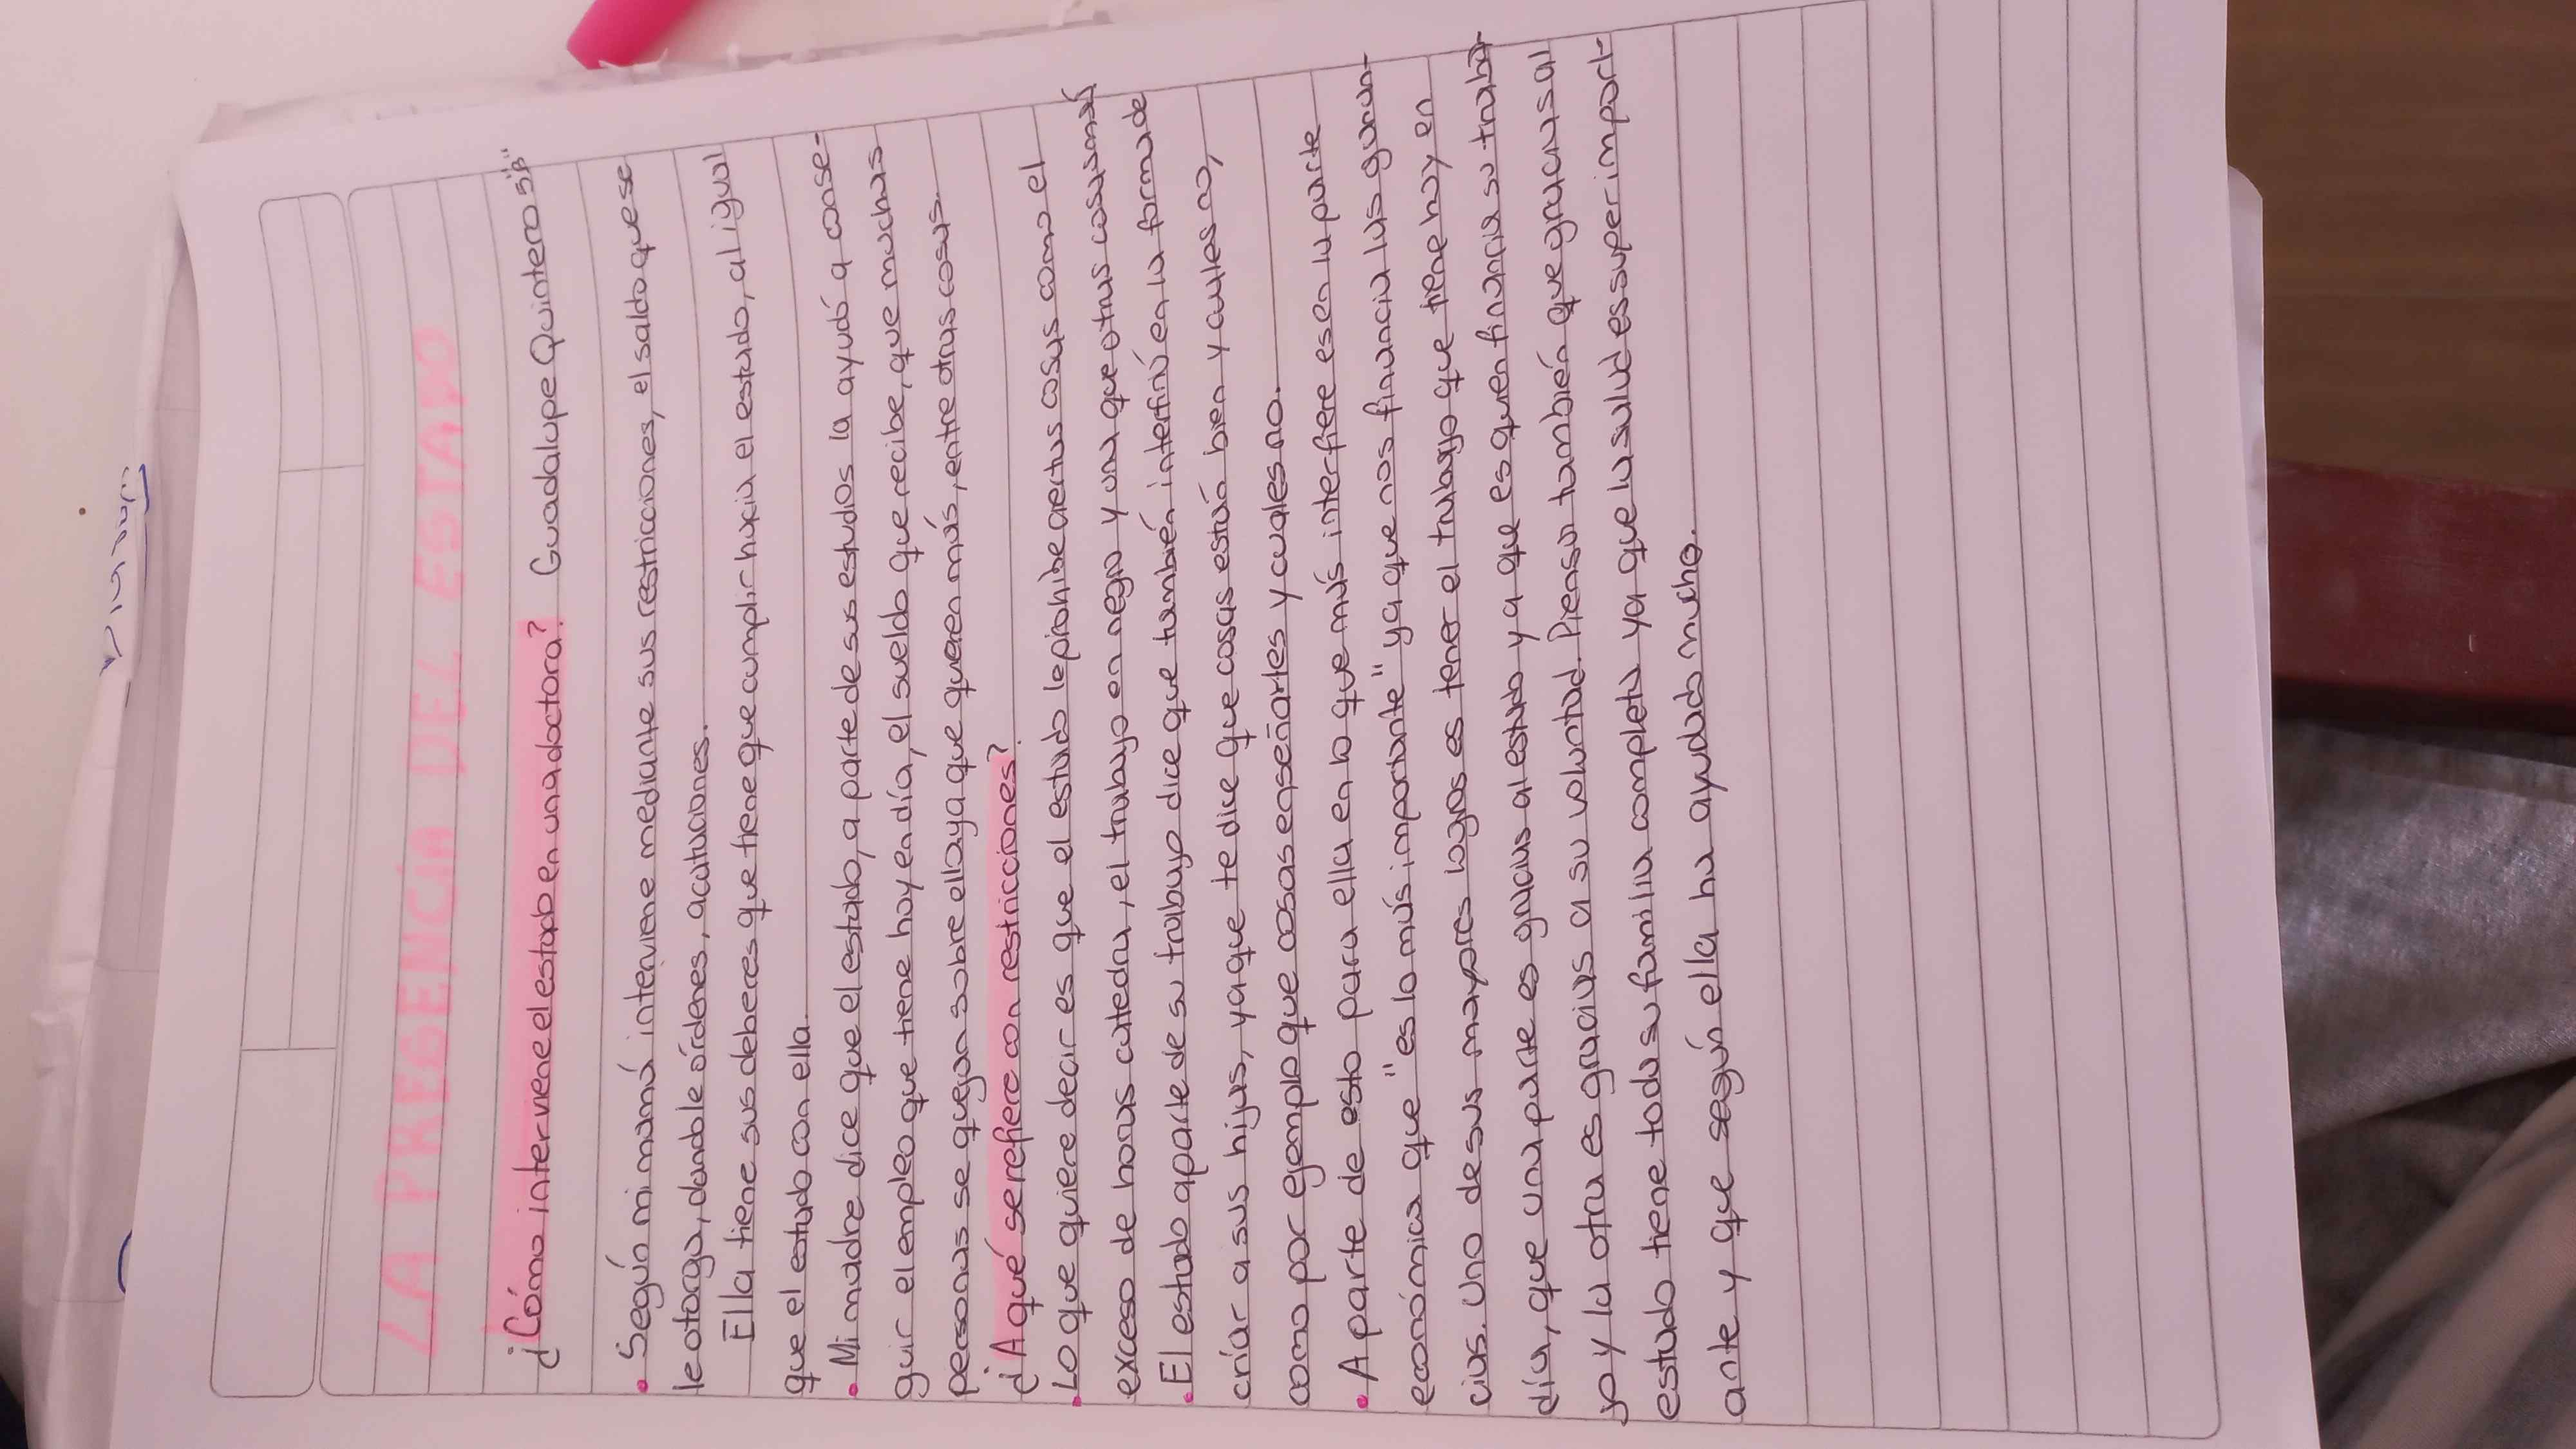 LA PRESENCÍA DEL ESTADO
¿Cómo interviene el estado en una doctora? Guadalupe Quintero 5"B"
• Según mi mamá interviene mediante sus restricciones, el saldo que se
le otorga, dandole órdenes, acataciones.
Ella tiene sus deberes que tiene que cumplir hacia el estado, al igual
que el estado con ella.
• Mi madre dice que el estado, a parte de sus estudios la ayudó a conse-
guir el empleo que tiene hoy en día, el sueldo que recibe, que muchas
personas se quejan sobre ella ya que quieren más, entre otras cosas.
¿A qué se refiere con restricciones?
• Lo que quiere decir es que el estado le prohibe ciertas cosas como el
exceso de horas catedra, el trabajo en negro y una que otras cosas más
• El estado aparte de su trabajo dice que también interfirió en la forma de
críar a sus hijas, ya que te dice que cosas están bien y cuales no,
como por ejemplo que cosas enseñarles y cuales no.
• A parte de esto para ella en lo que más interfiere es en la parte
económica que "es lo más importante" ya que nos financia las ganan-
cias. Uno de sus mayores logros es tener el trabajo que tiene hoy en
día, que una parte es gracias al estado ya que es quien financia su traba-
jo y la otra es gracias a su voluntad. Piensa también que gracias al
estado tiene toda su familia completa ya que la salud es super import-
ante y que según ella ha ayudado mucho.